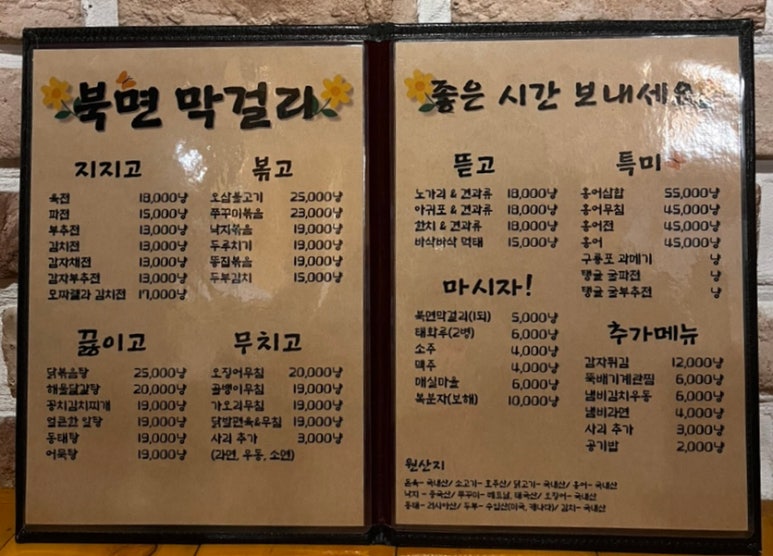 북면 막걸리
지지고
육전 18,000냥
파전 15,000냥
부추전 13,000냥
김치전 13,000냥
감자채전 13,000냥
감자부추전 13,000냥
오짜랠라 김치전 17,000냥
볶고
오삼불고기 25,000냥
쭈꾸미볶음 23,000냥
낙지볶음 19,000냥
두루치기 19,000냥
똥집볶음 19,000냥
두부김치 15,000냥
끓이고
닭볶음탕 25,000냥
해물달갈탕 20,000냥
꽁치김치찌개 19,000냥
얼큰한 알탕 19,000냥
동태탕 19,000냥
어묵탕 19,000냥
무치고
오징어무침 20,000냥
골뱅이무침 19,000냥
가오리무침 19,000냥
닭발편육&무침 19,000냥
사리 추가 3,000냥
(라면, 우동, 소면)
좋은 시간 보내세요
뜯고
노가리 & 견과류 18,000냥
아귀포 & 견과류 18,000냥
한치 & 견과류 18,000냥
바삭바삭 먹태 15,000냥
마시자!
북면막걸리(1되) 5,000냥
태화루(2병) 6,000냥
소주 4,000냥
맥주 4,000냥
매실마을 6,000냥
복분자(보해) 10,000냥
특미
홍어삼합 55,000냥
홍어무침 45,000냥
홍어전 45,000냥
홍어 45,000냥
구룡포 과메기 냥
탱글 굴파전 냥
탱글 굴부추전 냥
추가메뉴
감자튀김 12,000냥
뚝배기계란찜 6,000냥
냄비김치우동 6,000냥
냄비라면 4,000냥
사리 추가 3,000냥
공기밥 2,000냥
원산지
돈육- 국내산/ 소고기- 호주산/ 닭고기- 국내산/ 홍어- 국내산
낙지- 중국산/ 쭈꾸미- 베트남, 태국산/ 오징어- 국내산
동태- 러시아산/ 두부- 수입산(미국, 캐나다)/ 김치- 국내산